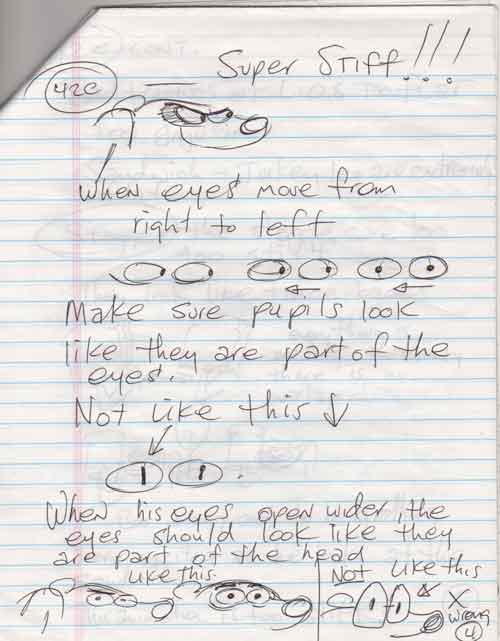 Super Stiff!!!
42C
When eyes move from
right to left
Make sure pupils look
like they are part of the
eyes.
Not like this ↓
When his eyes open wider, the
eyes should look like they
are part of the head
like this.
Not Like this
X
wrong
4